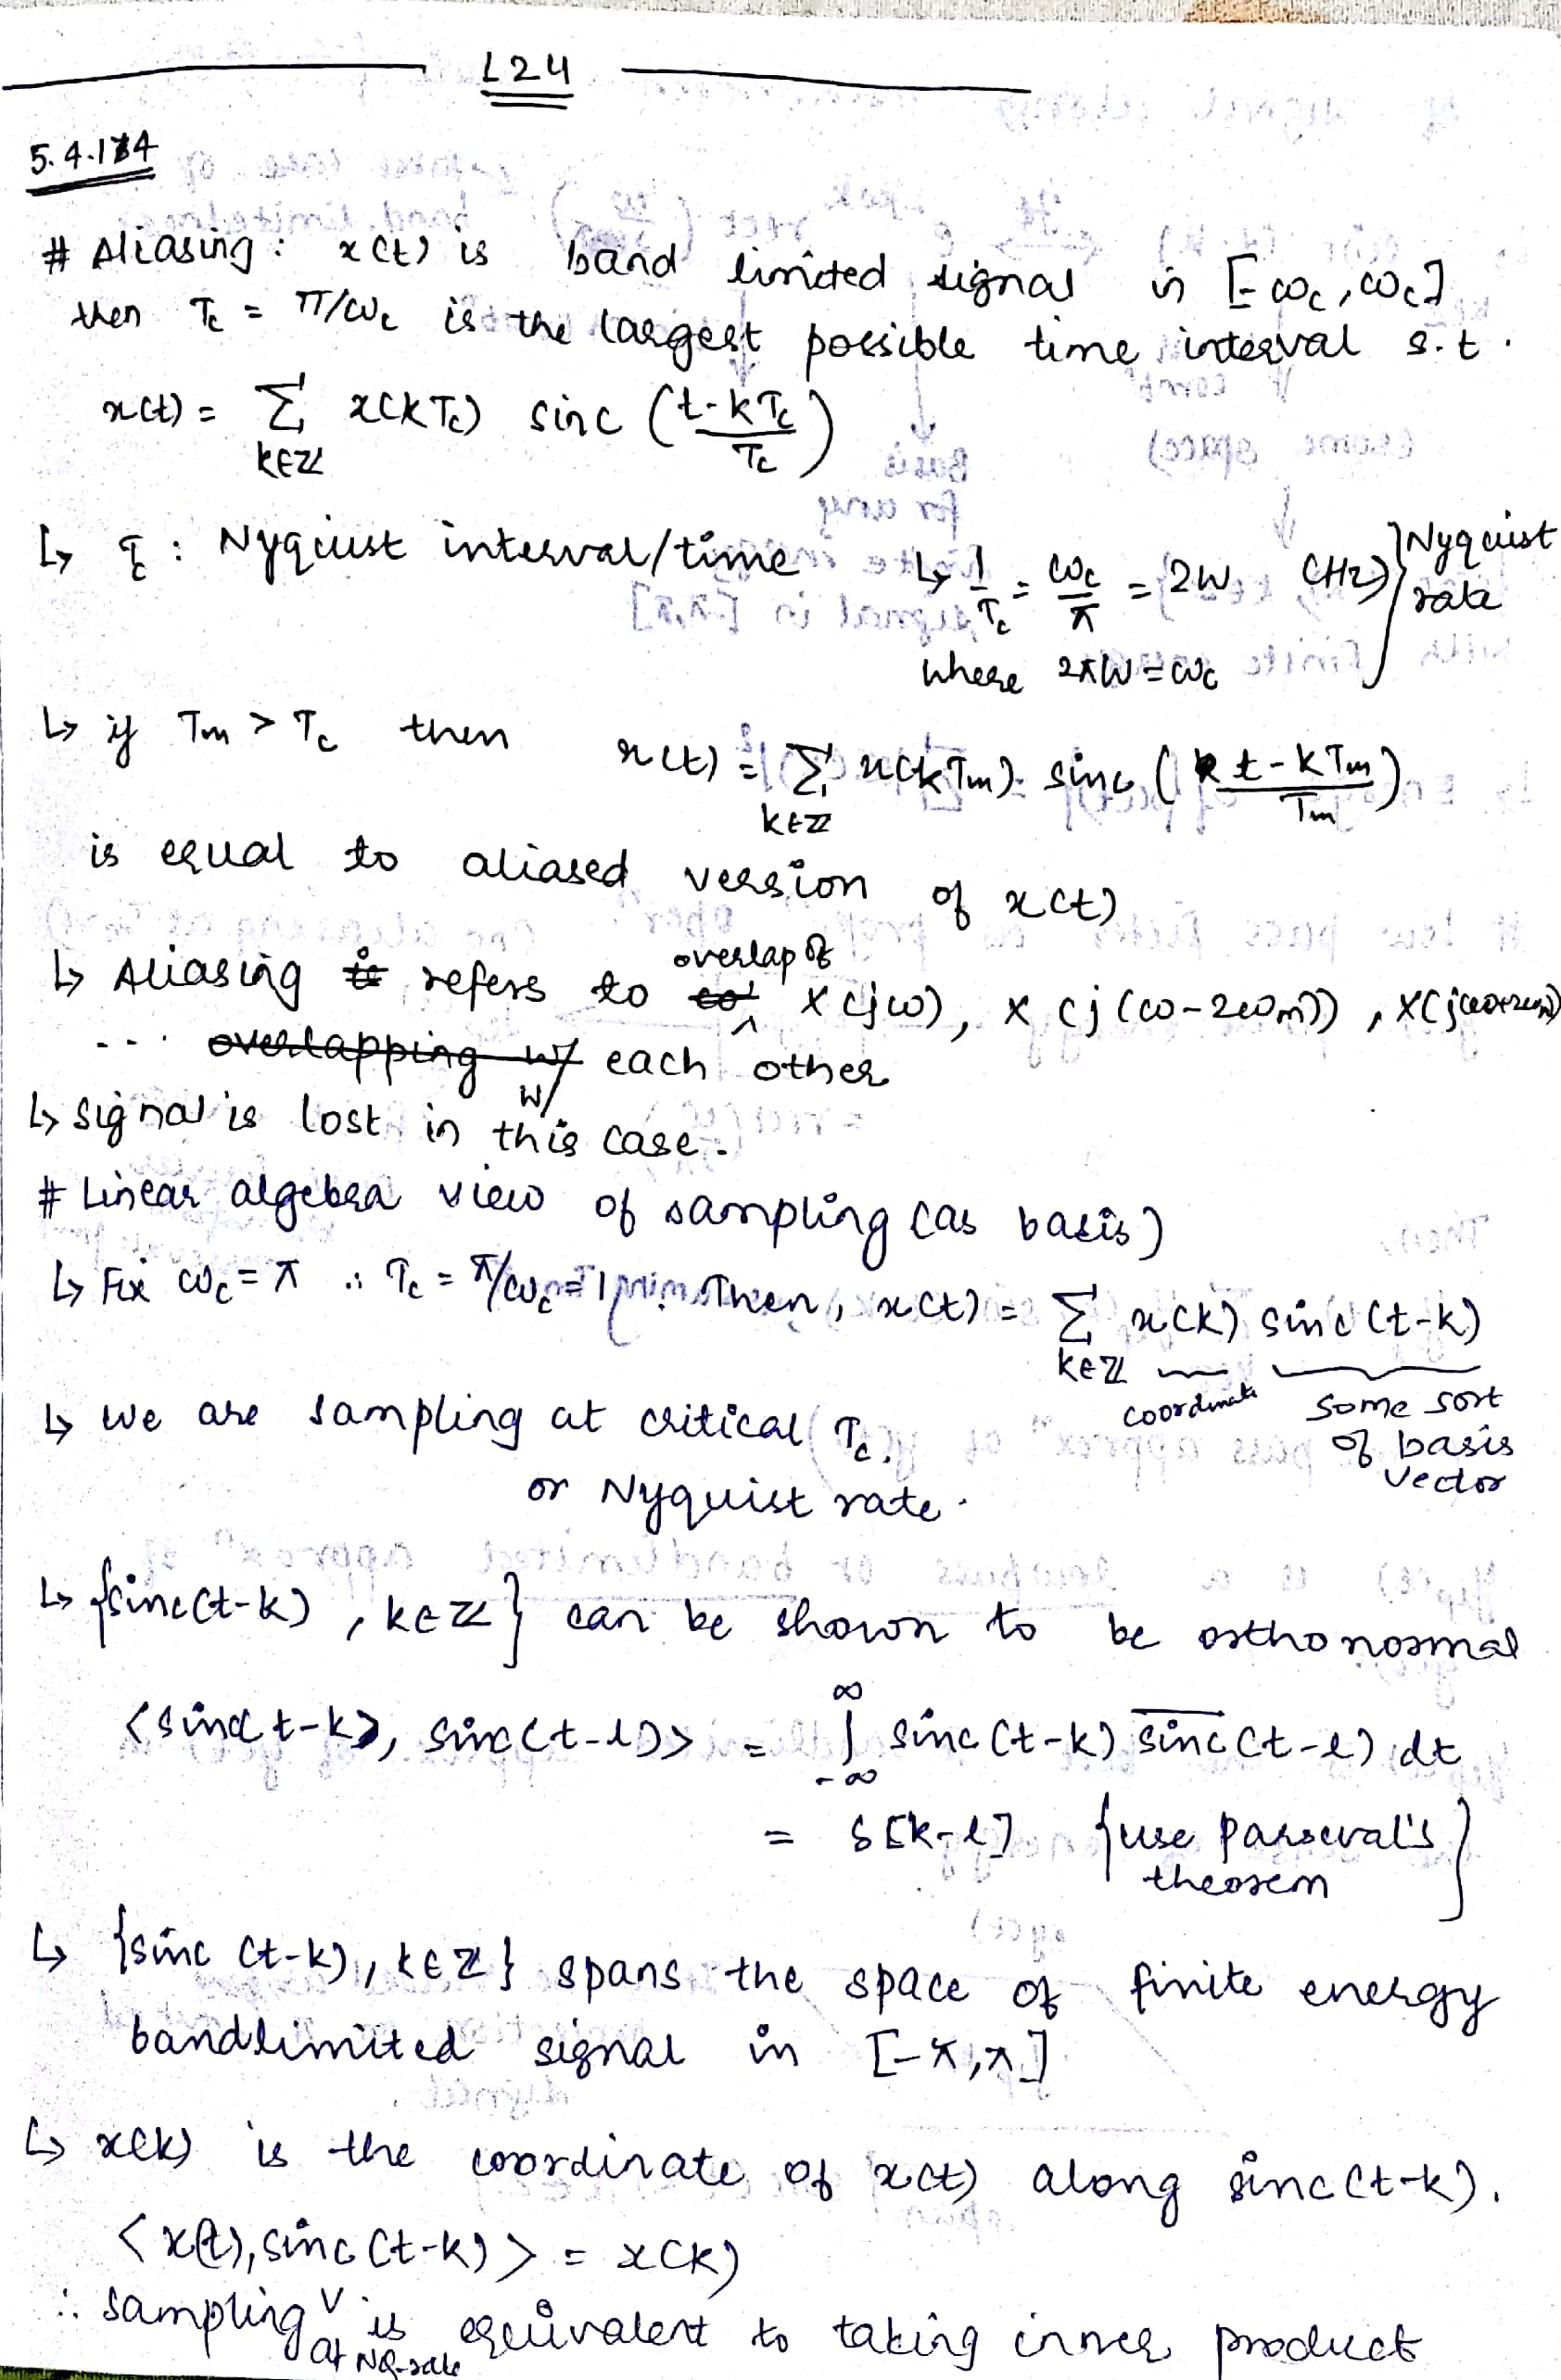 L24
5.4.124
# Aliasing : x(t) is band limited signal in [-ωc, ωc]
then Tc = π/ωc is the largest possible time interval s.t.
x(t) = Σ x(kTc) sinc (t-kTc / Tc)
k∈ℤ
↳ Tc : Nyquist interval/time ↳ 1/Tc = ωc/π = 2W (Hz) } Nyquist rate
where 2πW = ωc
↳ if Tm > Tc then x(t) = Σ x(kTm) sinc (t-kTm / Tm)
k∈ℤ
is equal to aliased version of x(t)
↳ Aliasing refers to overlap of X(jω), X(j(ω-2ωm)), X(j(ω+2ωm))
... w/ each other
↳ signal is lost in this case.
# Linear algebra view of sampling (as basis)
↳ Fix ωc = π ∴ Tc = π/ωc = 1. Then, x(t) = Σ x(k) sinc(t-k)
k∈ℤ coordinate some sort of basis vector
↳ we are sampling at critical Tc.
or Nyquist rate.
↳ {sinc(t-k), k∈ℤ} can be shown to be orthonormal
<sinc(t-k), sinc(t-l)> = ∫ from -∞ to ∞ sinc(t-k) \overline{sinc}(t-l) dt
= δ[k-l] {use Parseval's theorem}
↳ {sinc (t-k), k∈ℤ} spans the space of finite energy
bandlimited signal in [-π,π]
↳ x(k) is the coordinate of x(t) along sinc(t-k).
<x(t), sinc(t-k)> = x(k)
∴ sampling at NQ-rate is equivalent to taking inner product